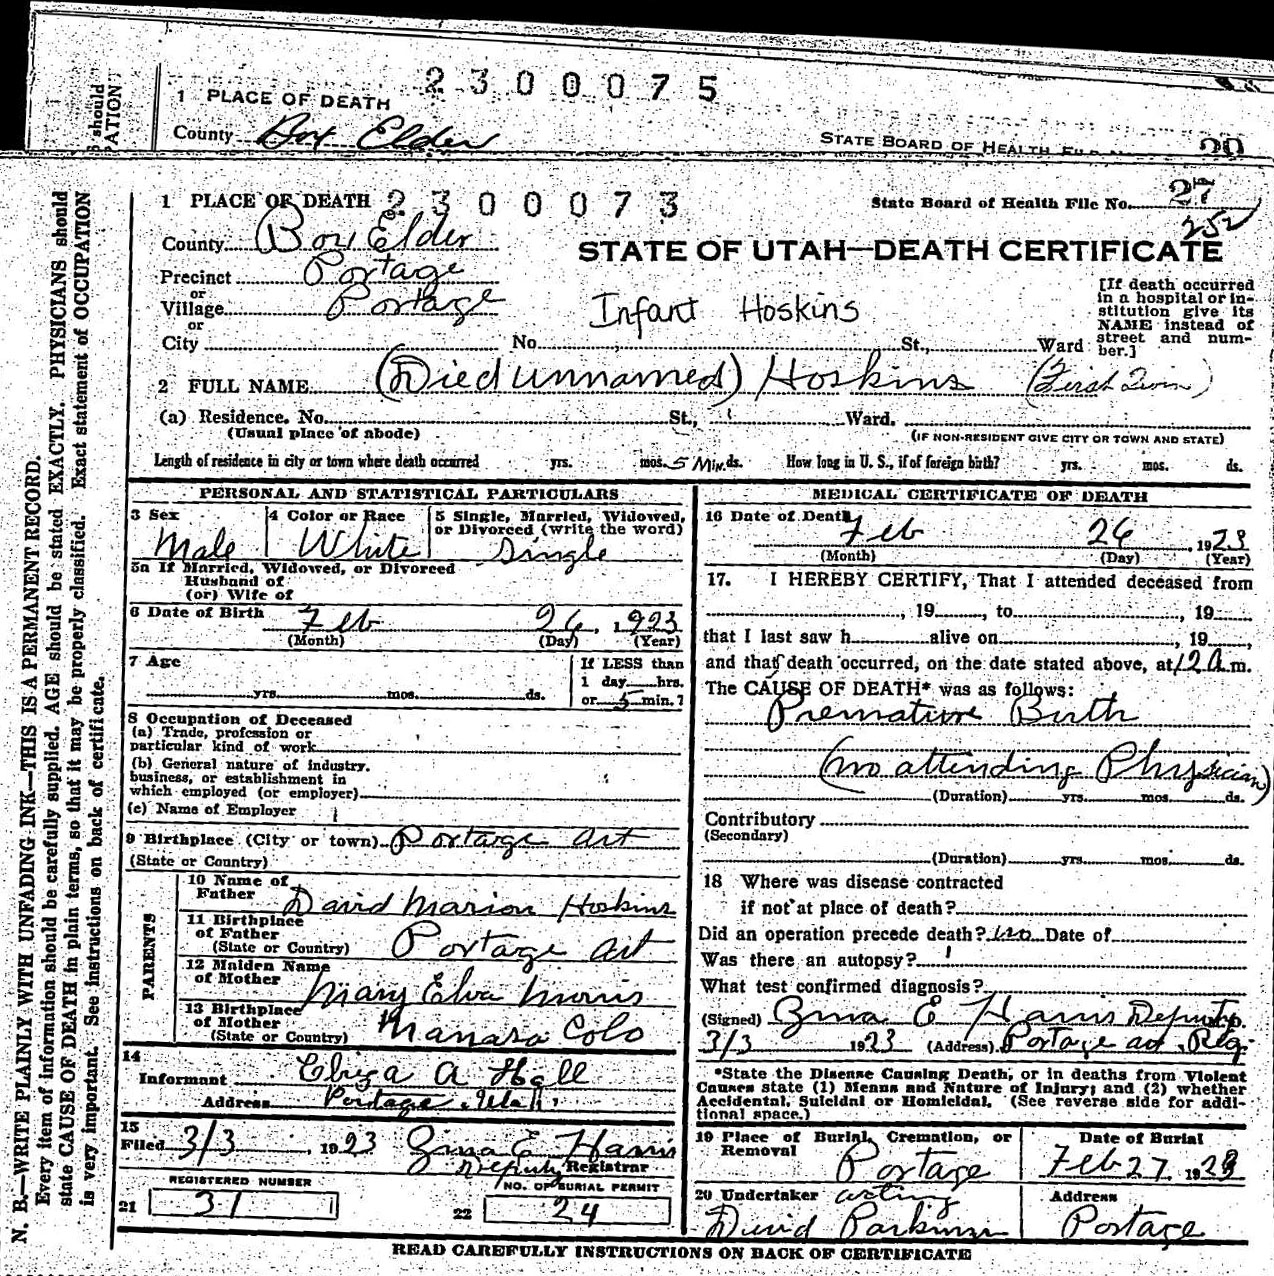 should
PATION
2300075
1 PLACE OF DEATH
County Box Elder
STATE BOARD OF HEALTH FILE
N. B.—WRITE PLAINLY WITH UNFADING INK—THIS IS A PERMANENT RECORD.
Every item of information should be carefully supplied. AGE should be stated EXACTLY. PHYSICIANS should
state CAUSE OF DEATH in plain terms, so that it may be properly classified. Exact statement of OCCUPATION
is very important. See instructions on back of certificate.
1 PLACE OF DEATH 2300073
State Board of Health File No. 27
252
County Box Elder
STATE OF UTAH—DEATH CERTIFICATE
Precinct Portage
or
Village Portage
or
Infant Hoskins
[If death occurred
in a hospital or in-
stitution give its
NAME instead of
street and num-
ber.]
City No. St., Ward
2 FULL NAME (Died unnamed) Hoskins (First Twin)
(a) Residence. No. St., Ward.
(Usual place of abode) (IF NON-RESIDENT GIVE CITY OR TOWN AND STATE)
Length of residence in city or town where death occurred yrs. mos. 5 Min. ds. How long in U. S., if of foreign birth? yrs. mos. ds.
PERSONAL AND STATISTICAL PARTICULARS
3 Sex Male
4 Color or Race White
5 Single, Married, Widowed,
or Divorced (write the word)
Single
5a If Married, Widowed, or Divorced
Husband of
(or) Wife of
6 Date of Birth Feb 26, 1923
(Month) (Day) (Year)
7 Age
yrs. mos. ds.
If LESS than
1 day hrs.
or 5 min.?
8 Occupation of Deceased
(a) Trade, profession or
particular kind of work
(b) General nature of industry,
business, or establishment in
which employed (or employer)
(c) Name of Employer
9 Birthplace (City or town) Portage Ut
(State or Country)
PARENTS
10 Name of
Father David Marion Hoskins
11 Birthplace
of Father
(State or Country) Portage Ut
12 Maiden Name
of Mother Mary Elva Morris
13 Birthplace
of Mother
(State or Country) Manassa Colo
14
Informant Eliza A Hall
Address Portage Utah
15
Filed 3/3, 1923 Zina E Harris
Deputy Registrar
REGISTERED NUMBER
21 31
NO. OF BURIAL PERMIT
22 24
MEDICAL CERTIFICATE OF DEATH
16 Date of Death
Feb 26, 1923
(Month) (Day) (Year)
17. I HEREBY CERTIFY, That I attended deceased from
, 19 , to , 19
that I last saw h alive on , 19
and that death occurred, on the date stated above, at 12 a m.
The CAUSE OF DEATH* was as follows:
Premature Birth
(no attending Physician)
(Duration) yrs. mos. ds.
Contributory
(Secondary)
(Duration) yrs. mos. ds.
18 Where was disease contracted
if not at place of death?
Did an operation precede death? no Date of
Was there an autopsy?
What test confirmed diagnosis?
(Signed) Zina E Harris Deputy
3/3 1923 (Address) Portage Ut Reg.
*State the Disease Causing Death, or in deaths from Violent
Causes state (1) Means and Nature of Injury; and (2) whether
Accidental, Suicidal or Homicidal. (See reverse side for addi-
tional space.)
19 Place of Burial, Cremation, or
Removal
Portage
Date of Burial
Feb 27, 1923
20 Undertaker acting
David Parkinson
Address
Portage
READ CAREFULLY INSTRUCTIONS ON BACK OF CERTIFICATE